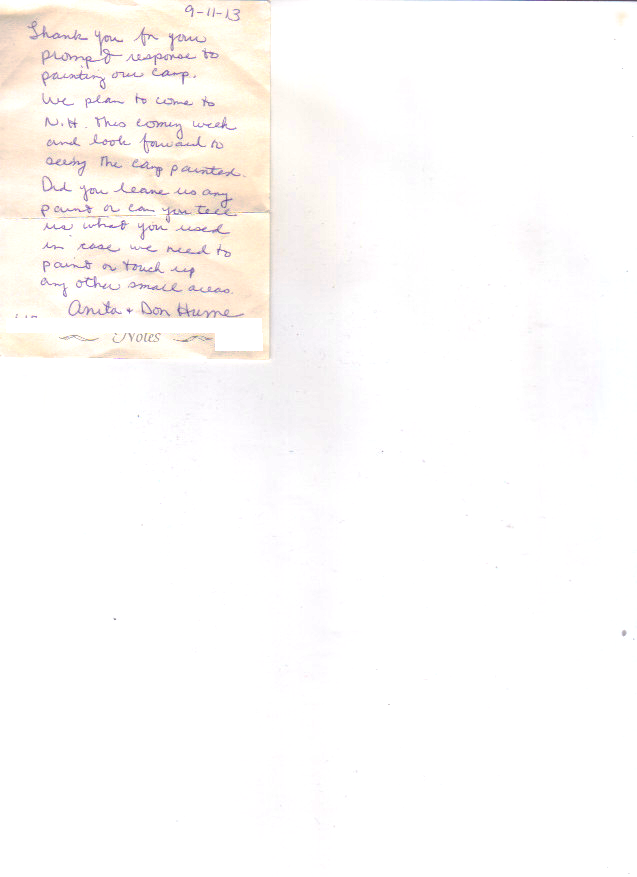 9-11-13
Thank you for your
prompt response to
painting our camp.
We plan to come to
N.H. this coming week
and look forward to
seeing the camp painted.
Did you leave us any
paint or can you tell
us what you used
in case we need to
paint or touch up
any other small areas.
Anita + Don Hume
Notes